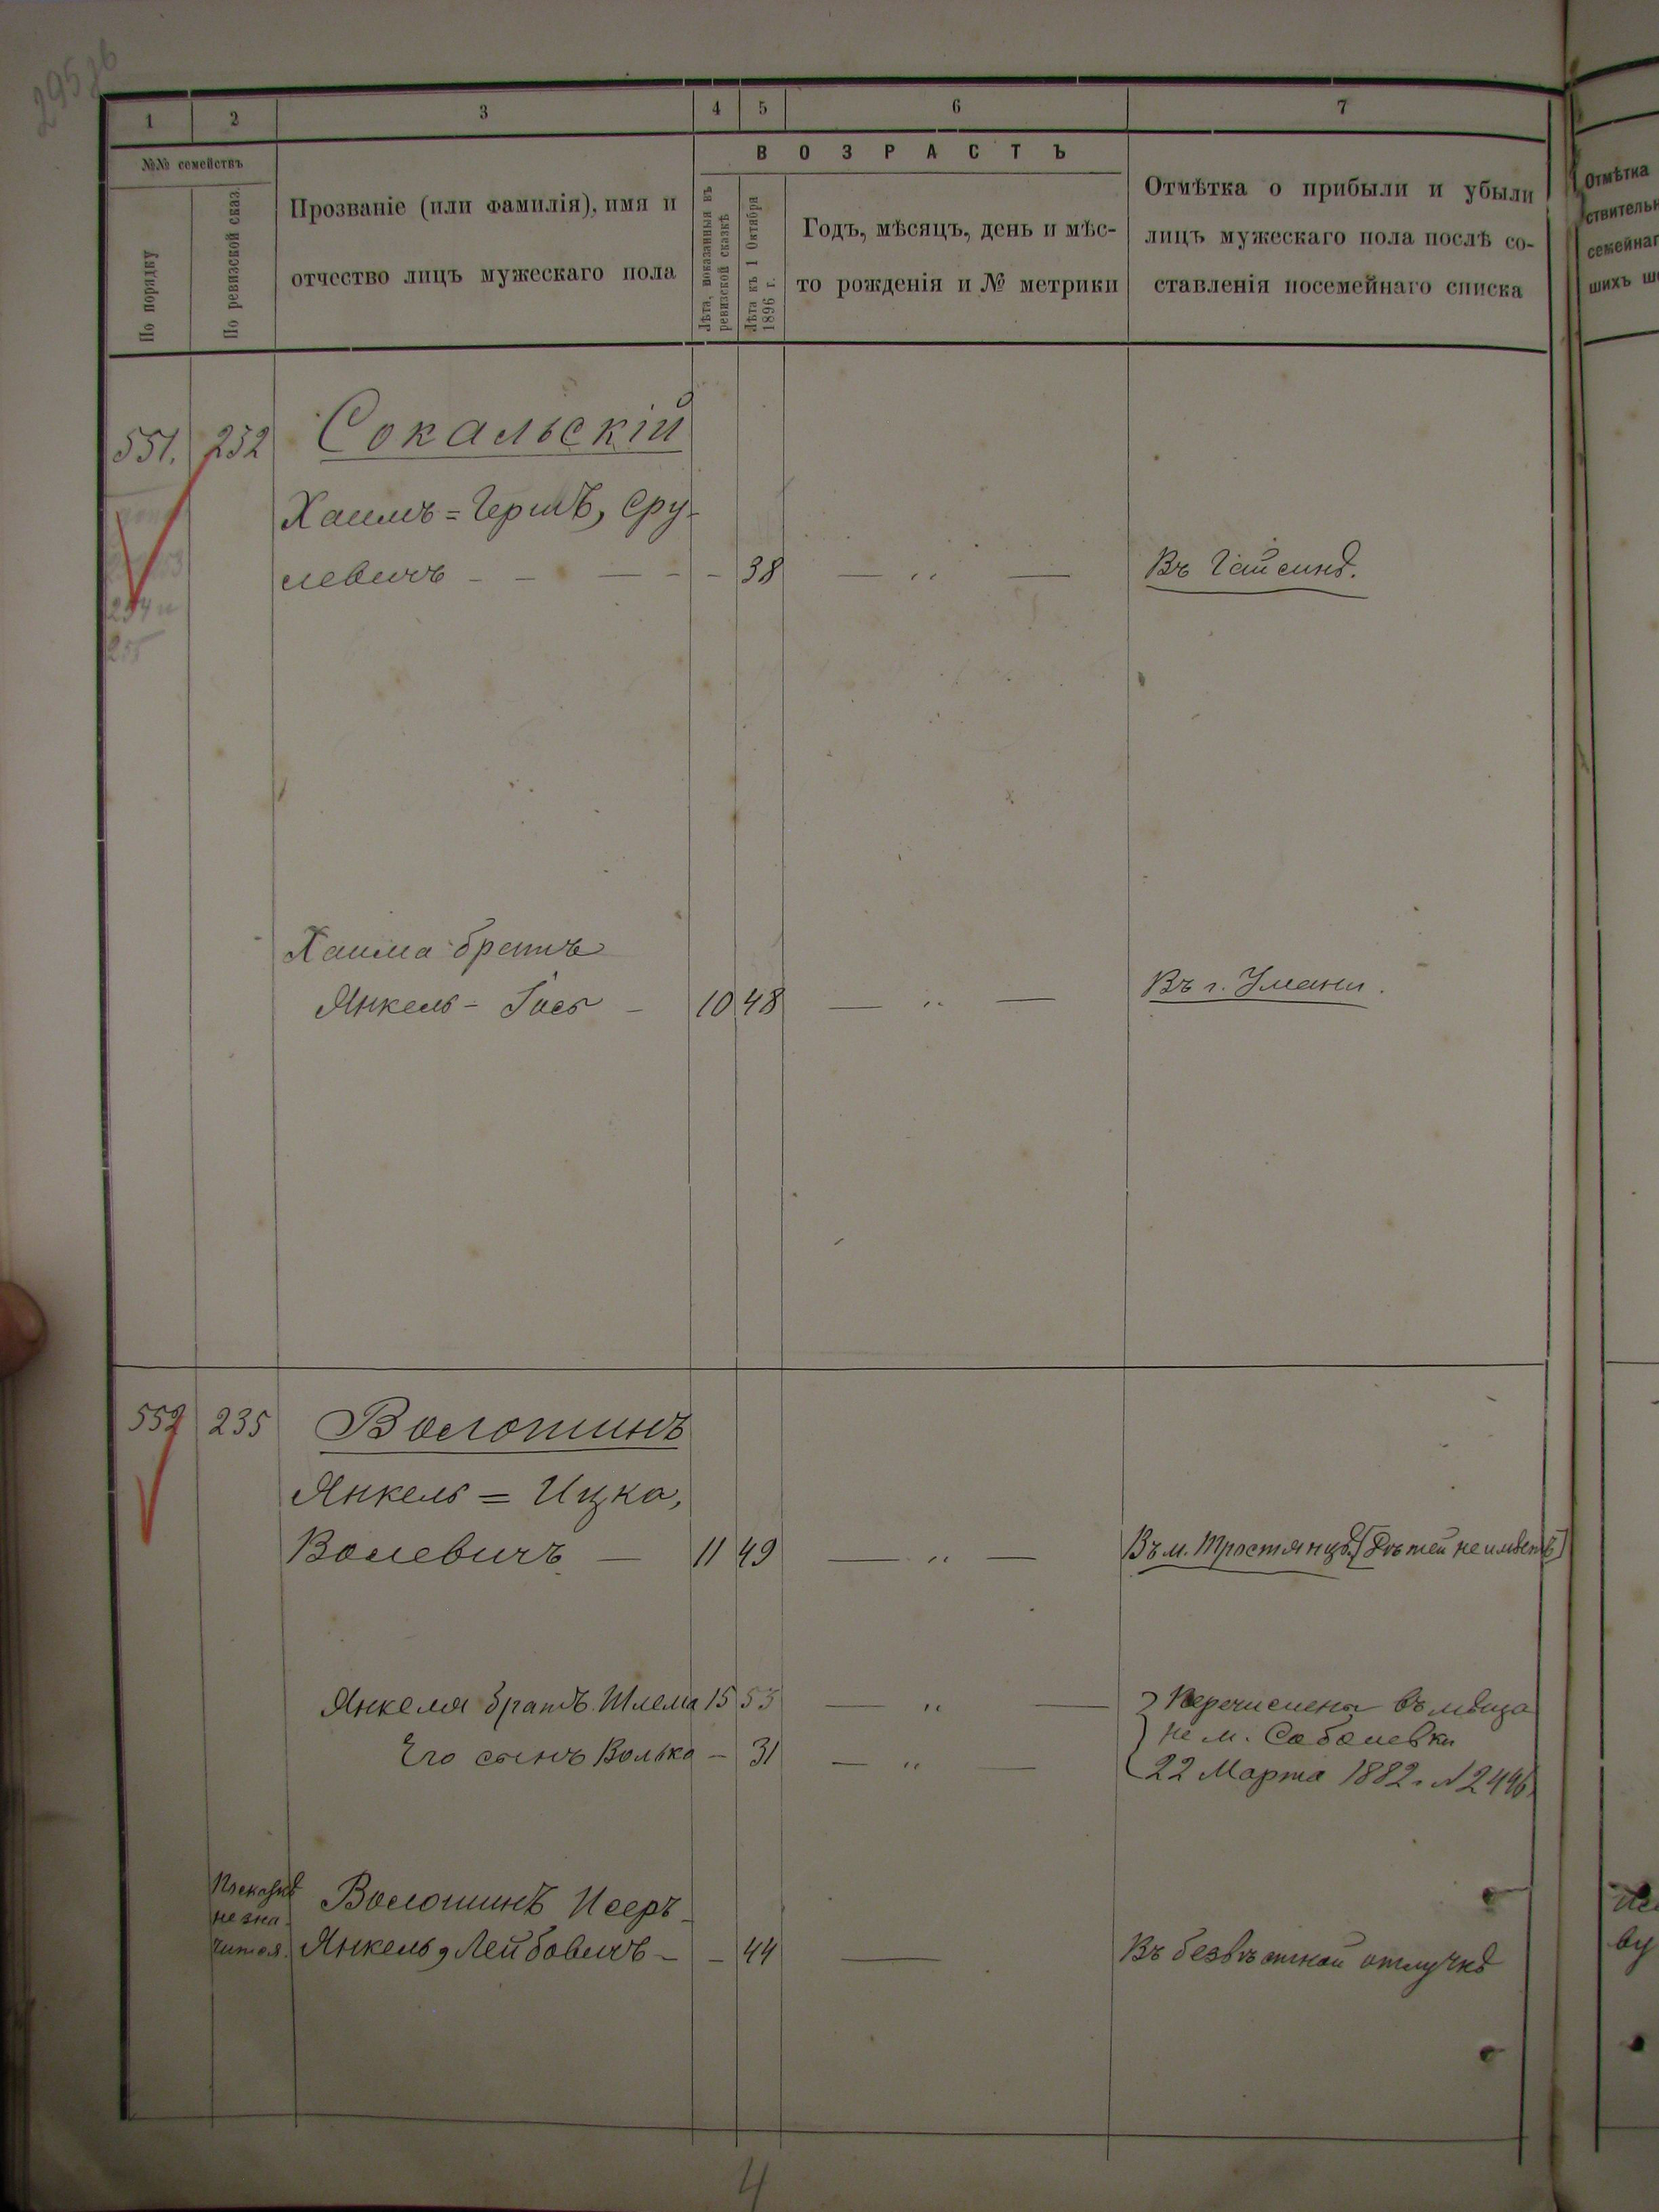 295 об
1 2 3 4 5 6 7
№№ семействъ
По порядку
По ревизской сказ.
Прозваніе (или фамилія), имя и
отчество лицъ мужескаго пола
ВОЗРАСТЪ
Лѣта, показанныя въ
ревизской сказкѣ
Лѣта къ 1 Октября
1896 г.
Годъ, мѣсяцъ, день и мѣс-
то рожденія и № метрики
Отмѣтка о прибыли и убыли
лицъ мужескаго пола послѣ со-
ставленія посемейнаго списка
Отмѣтка
ствительн
семейнаг
шихъ
551. 252 Сокальскій
Хаимъ=Гершъ, Сру-
левичъ - - — - - 38 — „ — Въ Гайсинѣ.
254 и
255
Хаима братъ
Янкель - Іось - 10 48 — „ — Въ г. Умани.
552 235 Волотинъ
Янкель = Ицко,
Волевичъ — 11 49 — „ — Въ м. Тростянцѣ. [Дѣтей не имѣетъ]
Янкеля братъ Шлема 15 53 — „ — Перечислена въ мѣща
не м. Соболевки
Его сынъ Волько - 31 — „ — 22 Марта 1882. № 2446.
По сказкѣ
не зна-
чится.
Волотинъ Исеръ-
Янкель, Лейбовичъ - - 44 — Въ безвѣстной отлучкѣ
4